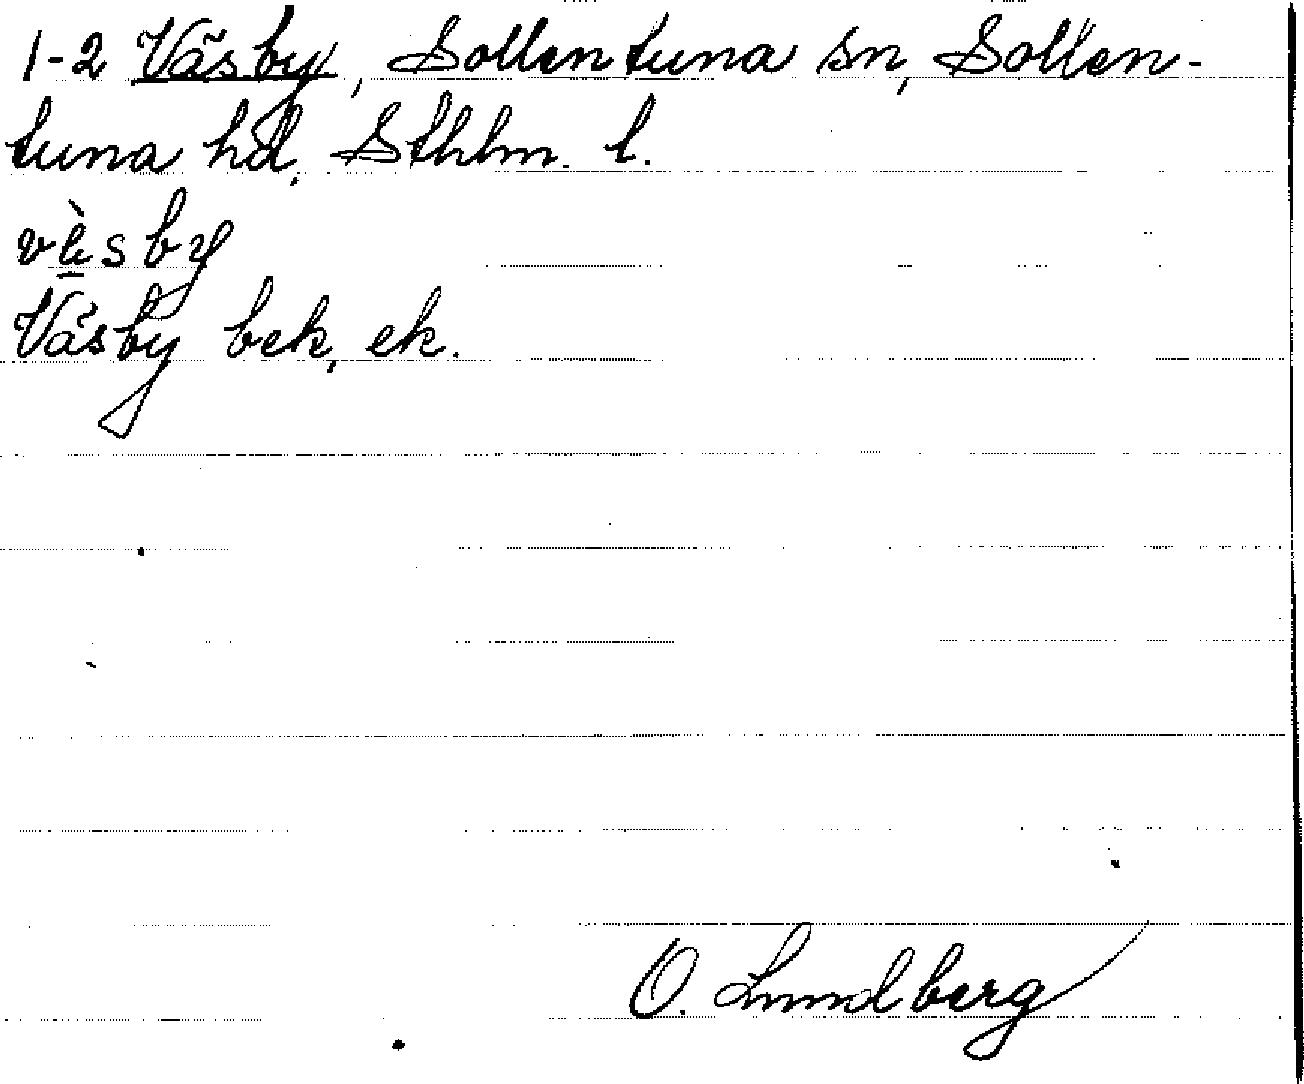 1-2 Väsby, Sollentuna sn, Sollen-
tuna hd, Sthlm. l.
vὲsby
Väsby bek, ek.
O. Lundberg